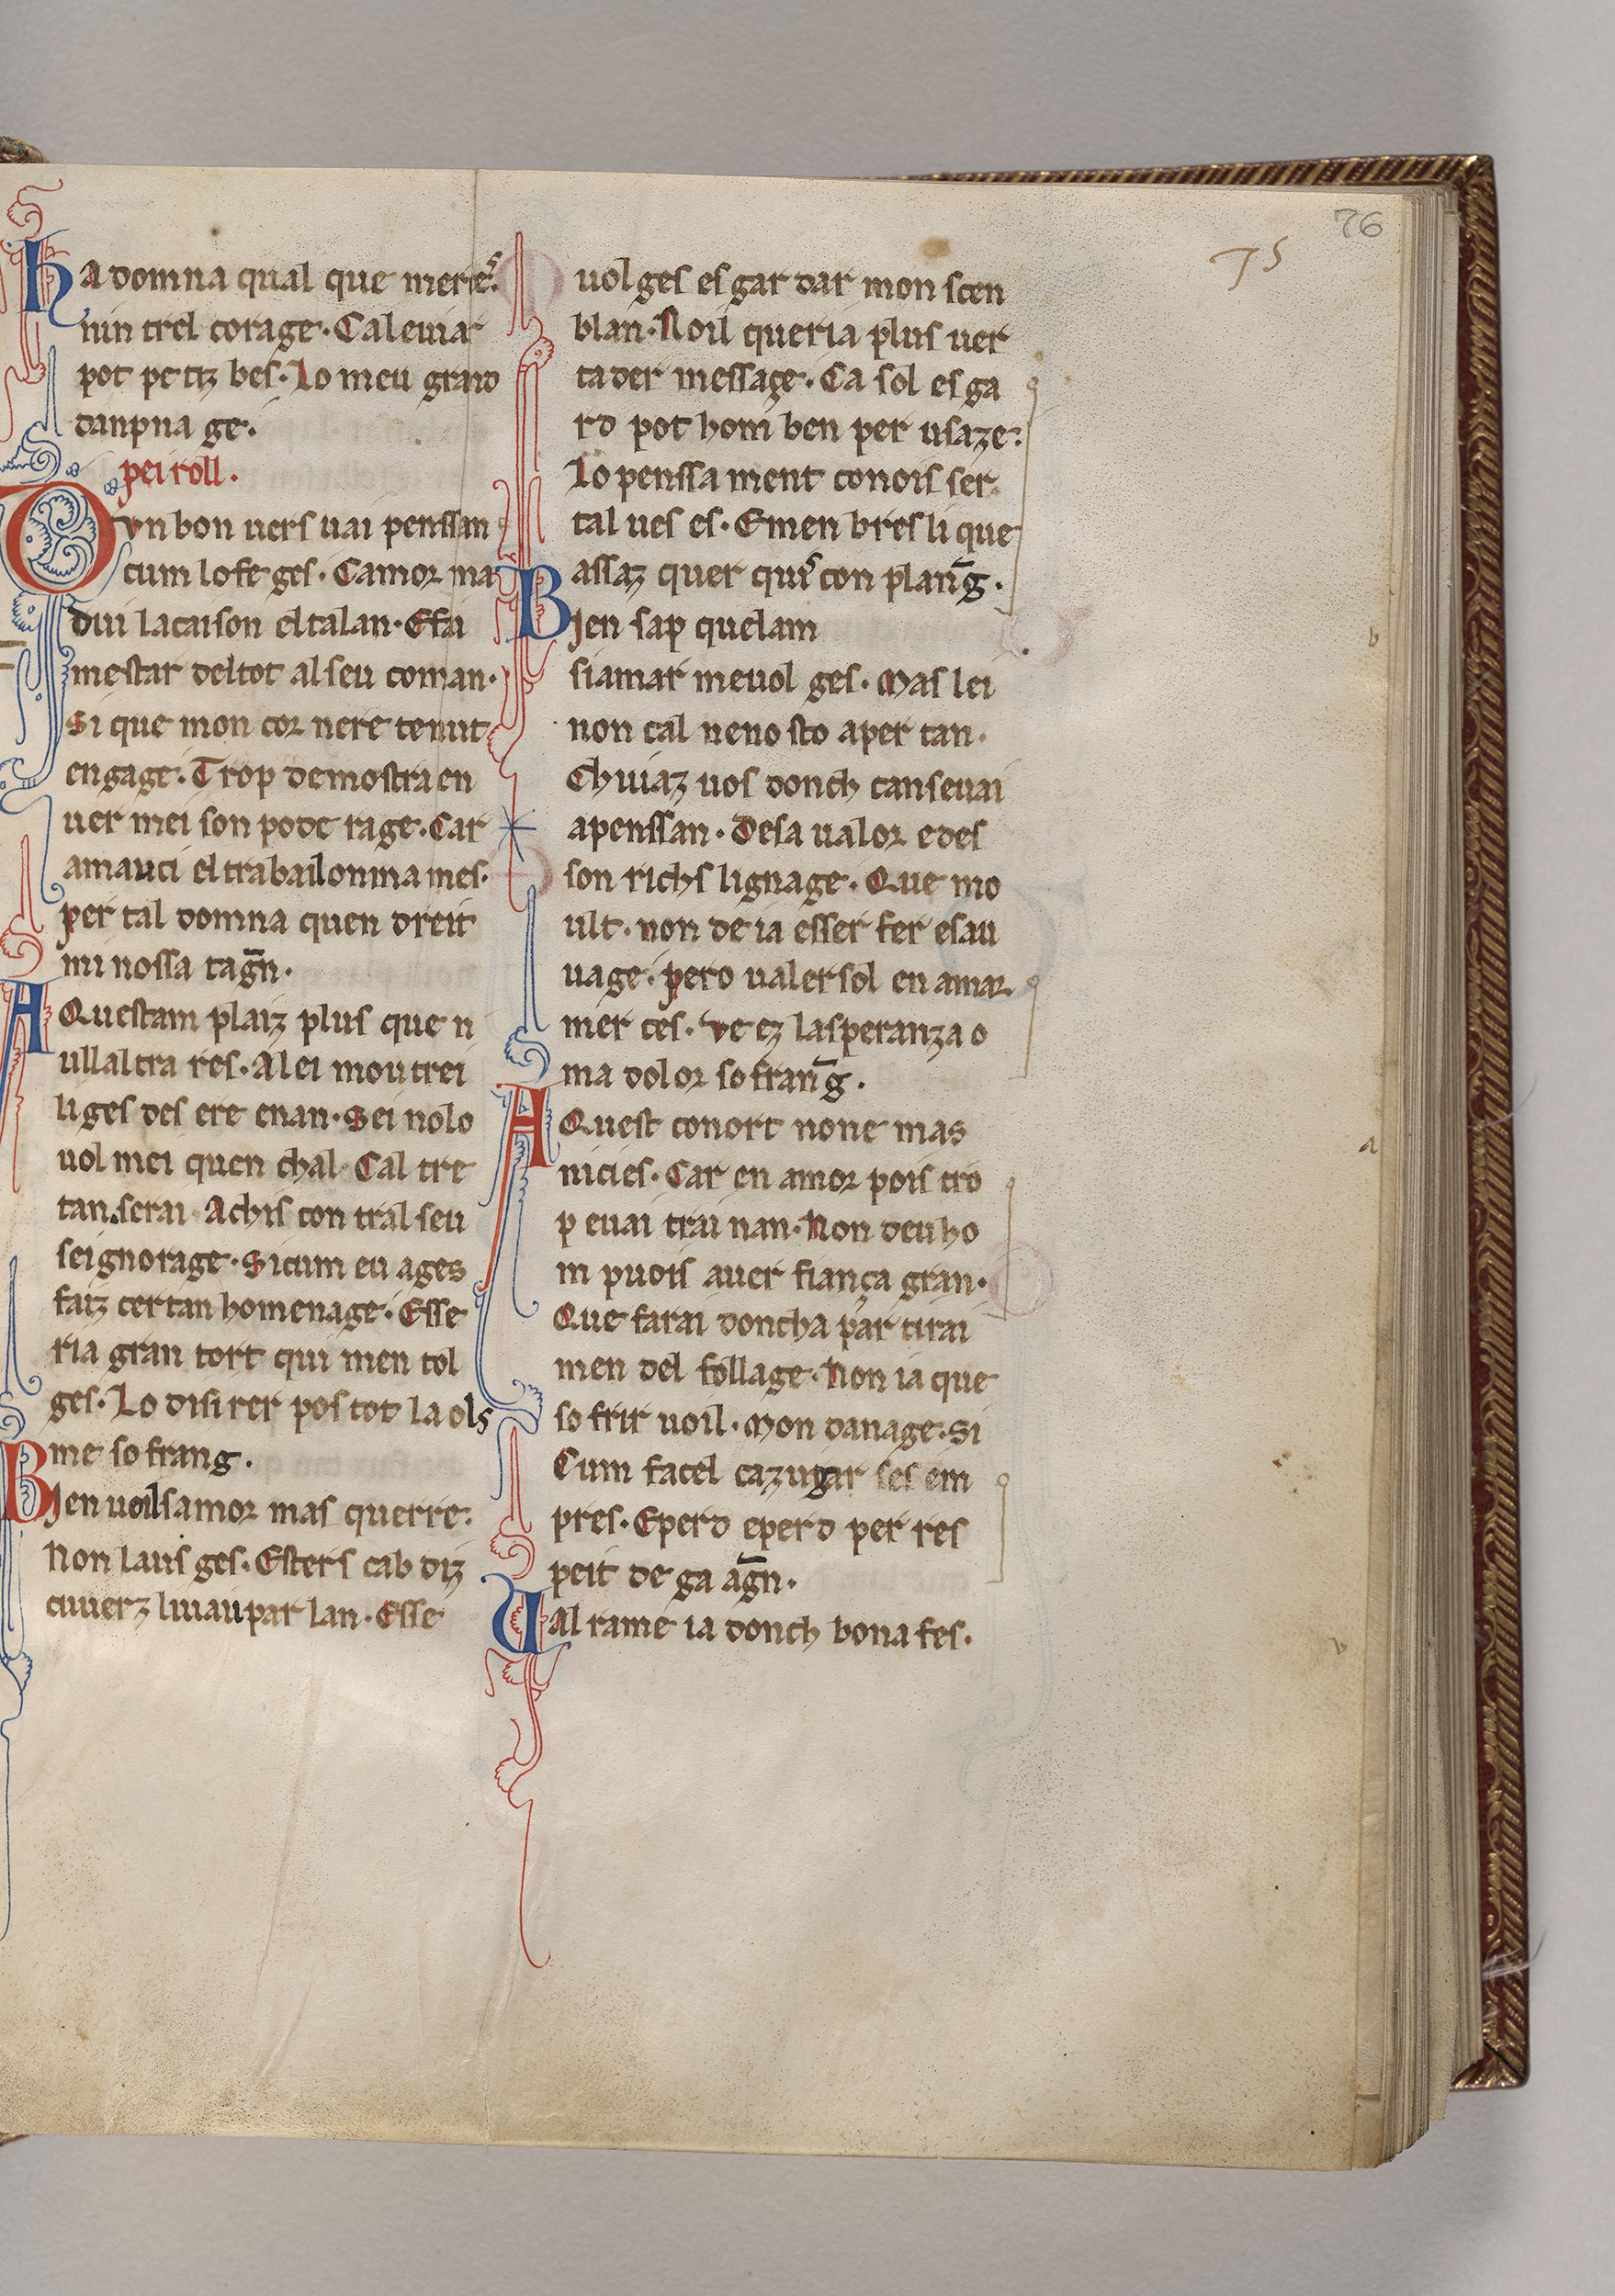 76
75
Ha domna qual que merces
nin trel corage. Caleuiar
pot petiz bes. Lo meu grand
danpna ge.
peiroll.
Dvn bon uers uai penssan
cum lo fe ges. Camor ma
dui lacaison el talan. E fai
mestar deltot al seu coman.
Si que mon cor nere tenut
en gage. Trop demostra en
uer mei son podc rage. Car
amauci el trabailonma mes.
per tal domna quen dreit
mi nossa tagn̄.
A Questam plaiz plus que n
ullaltra res. A lei mou trei
li ges des ere enan. Sei nolo
uol mei quen chal. Cal tre
tan serai. Achis con tral seu
seignorage. Sicum eu ages
faiz certan homenage. Esse
ria gran tort qui men tol
ges. Lo disirer pos tot la ols
me so frang.
Bien uoilsamor mas querre.
Non laus ges. Esters cab diz
cuuerz liuau par lan. Esse
uol ges es gar dar mon scen
blan. Noil queria plus uer
tader messaçe. Ca sol es ga
rd pot hom ben per usaze.
Lo penssa ment conois ser
tal ues es. E men bres li que
assaz quer quis con planḡ.
Bien sap quelam
siamar meuol ges. Mas lei
non cal neno sto aper tan.
Chiuiaz uos donch canseuai
apenssan. Desa ualor edes
son richs lignage. Que mo
ult. non de ia esser fer esau
uage. pero ualersol en amar
mer ces. ve ez lasperanza o
ma dolor sofranḡ.
A Quest conort none mas
nicies. Car en amor pois tro
p euai trai nan. Non deu ho
m puois auer fiança gran.
Que farai doncha par tirai
men del follage. Non ia que
so frir uoil. Mon danage. Si
Cum facel cazugar ses em
pres. E perd eperd per res
peit de ga agn̄.
Ual rame ia donch bona fes.
b
a
b